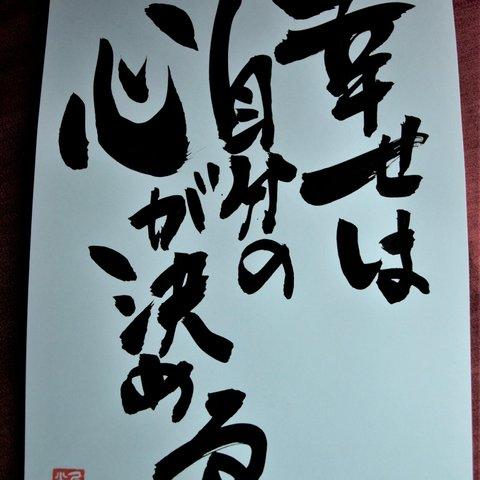 幸せは
自分の
心が決める